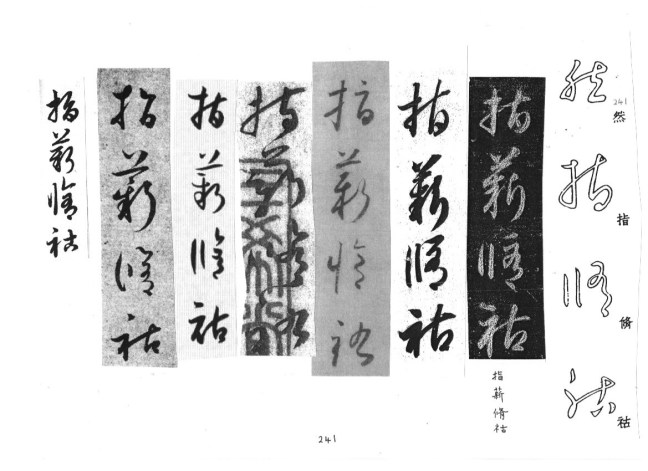 241
然
指
脩
祜
然指脩祜
指薪脩祜
指薪脩祜
指薪脩祜
指薪脩祜
指薪脩祜
指薪脩祜
指薪脩祜
指薪脩祜
241